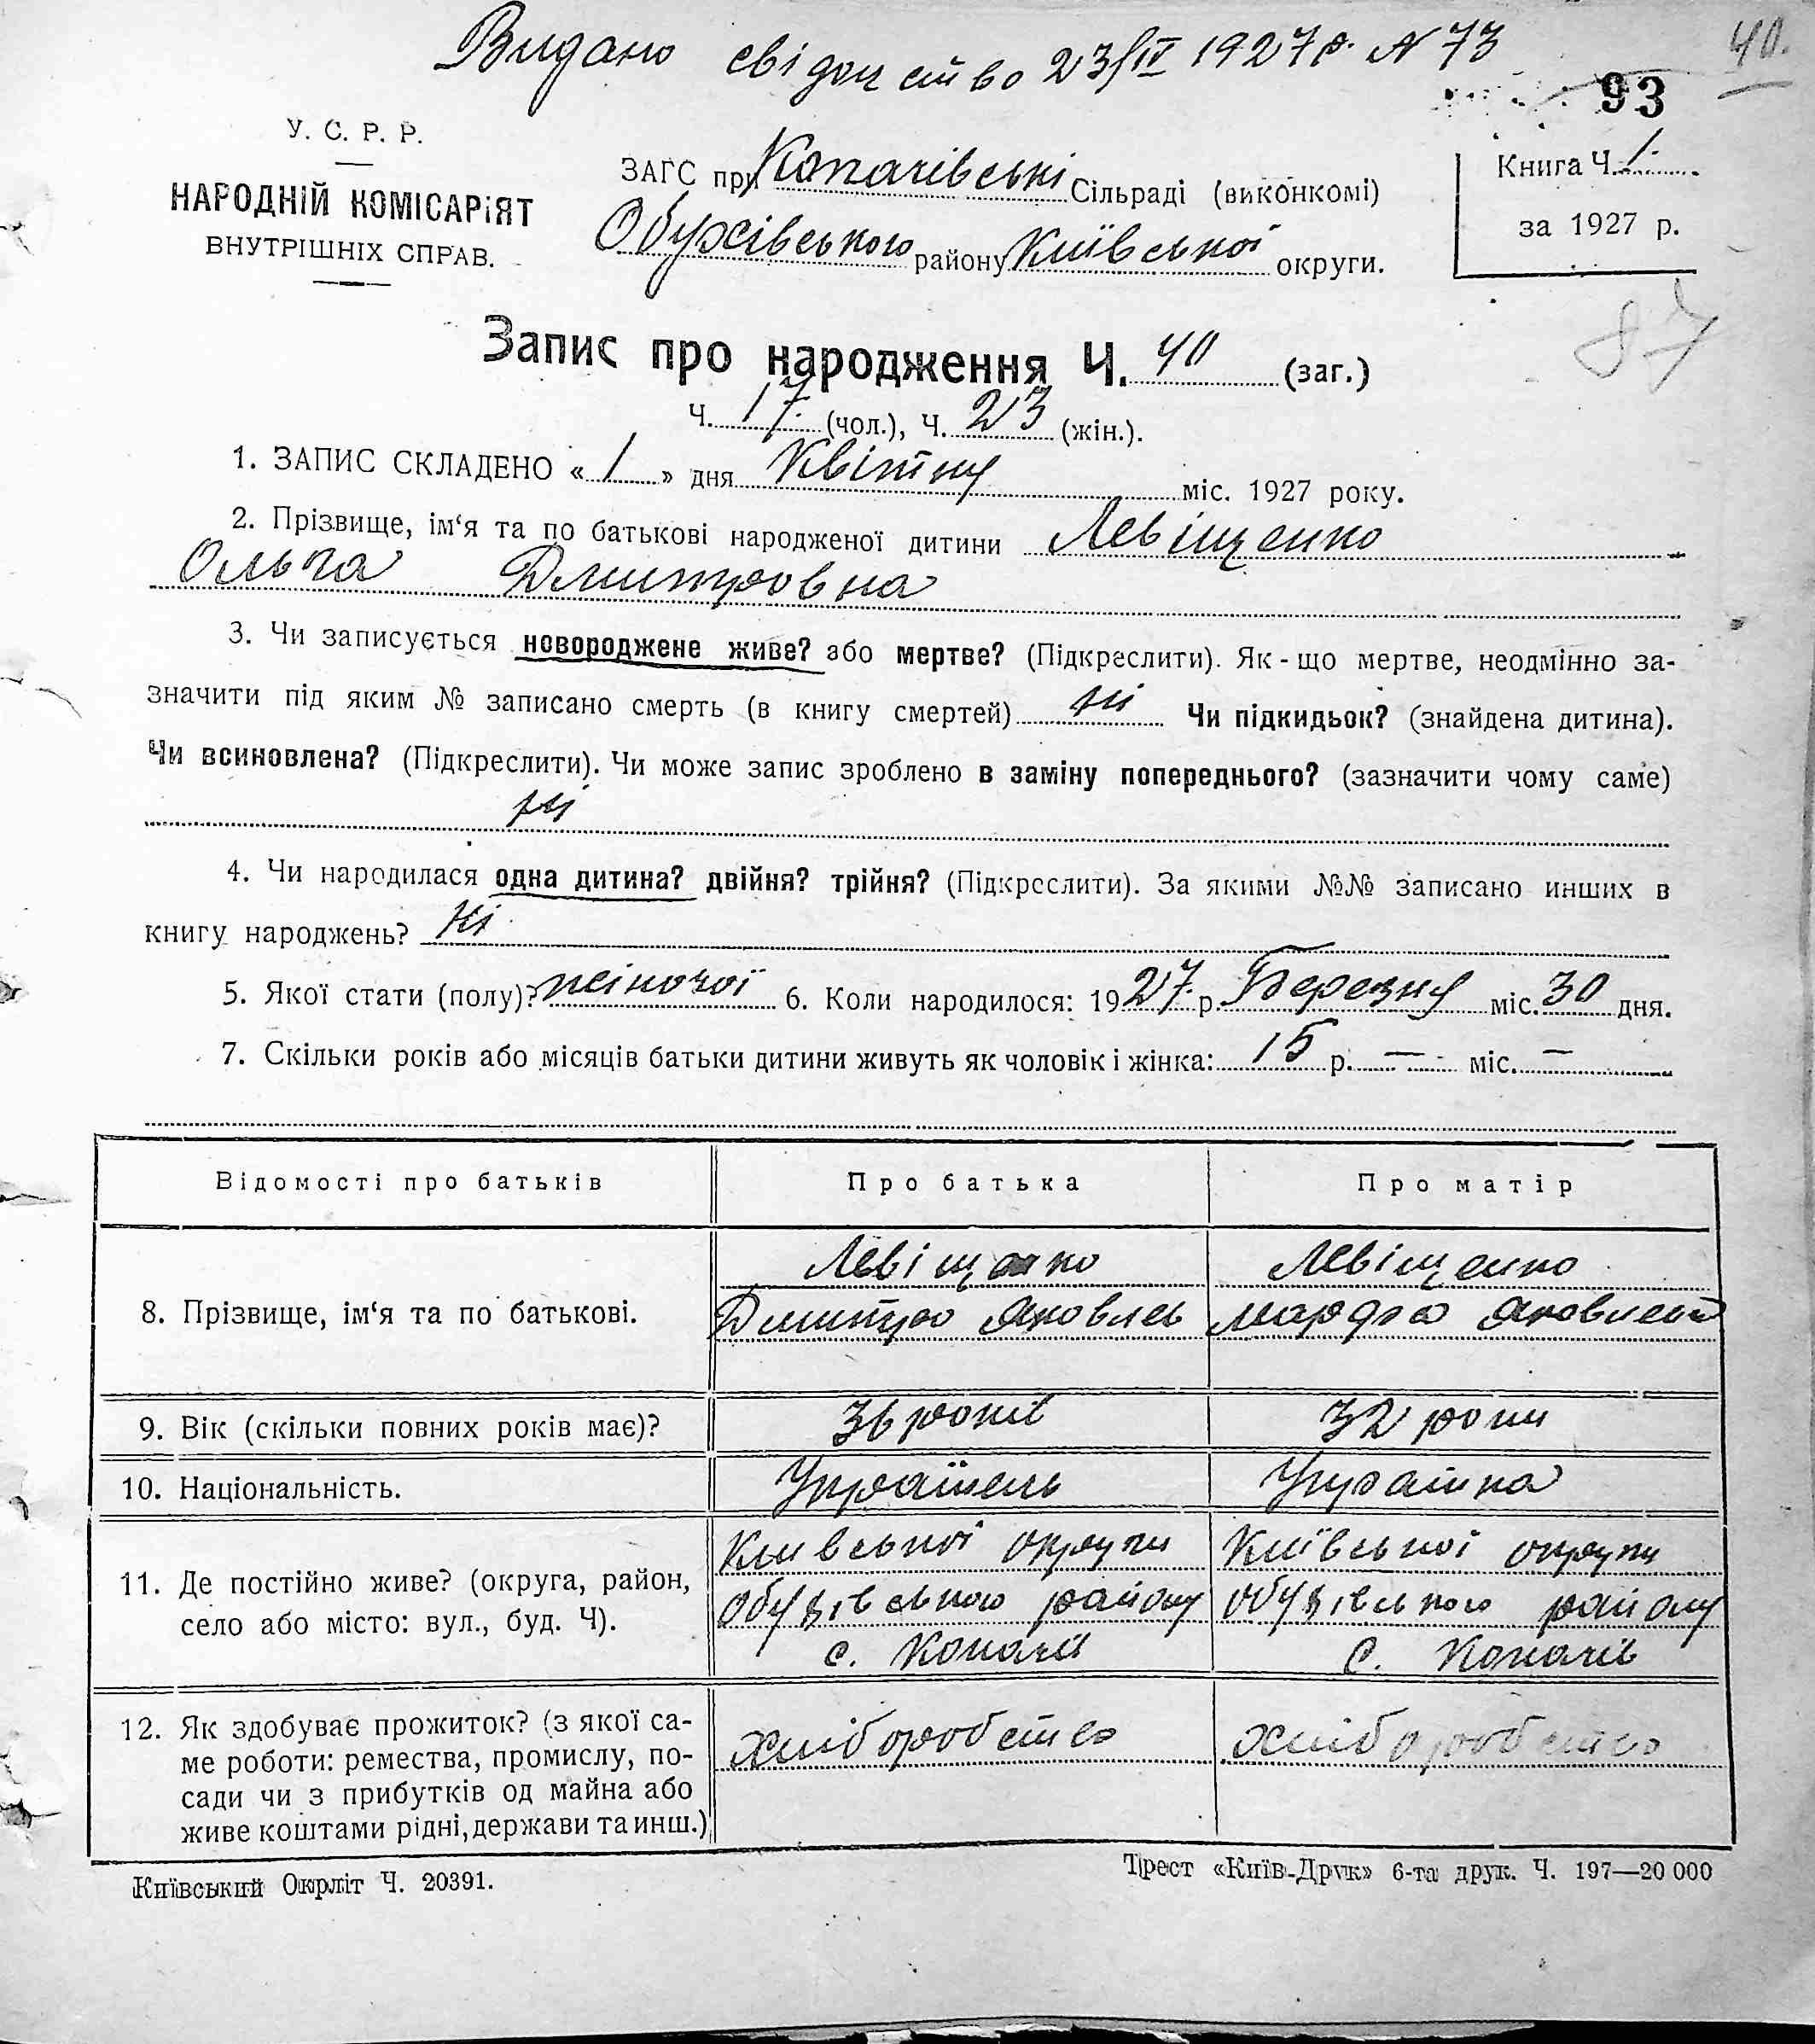 Видано свідоцтво 23/IV 1927 р. N 73
40.
93
У. С. Р. Р.
НАРОДНІЙ КОМІСАРІЯТ
ВНУТРІШНІХ СПРАВ.
ЗАГС при Копачівські Сільраді (виконкомі)
Обухівського району Київської округи.
Книга Ч. 1.
за 1927 р.
87
Запис про народження Ч. 40 (заг.)
Ч. 17. (чол.), Ч. 23 (жін.).
1. ЗАПИС СКЛАДЕНО «1» дня Квітну міс. 1927 року.
2. Прізвище, ім‘я та по батькові народженої дитини Левіщенко
Ольга Дмитровна
3. Чи записується новороджене живе? або мертве? (Підкреслити). Як-що мертве, неодмінно за-
значити під яким № записано смерть (в книгу смертей) ні Чи підкидьок? (знайдена дитина).
Чи всиновлена? (Підкреслити). Чи може запис зроблено в заміну попереднього? (зазначити чому саме)
ні
4. Чи народилася одна дитина? двійня? трійня? (Підкреслити). За якими №№ записано инших в
книгу народжень? ні
5. Якої стати (полу)? жіночої 6. Коли народилося: 1927 р. Березня міс. 30 дня.
7. Скільки років або місяців батьки дитини живуть як чоловік і жінка: 15 р. — міс. —
Відомості про батьків Про батька Про матір
Левіщенко Левіщенко
8. Прізвище, ім‘я та по батькові. Дмитро Яковлев Марфа Яковлевна
9. Вік (скільки повних років має)? 36 років 32 роки
10. Національність. Українець Українка
Київської округи Київської округи
11. Де постійно живе? (округа, район, Обухівського району Обухівського району
село або місто: вул., буд. Ч). с. Копачів с. Копачів
12. Як здобуває прожиток? (з якої са- хліборобство хліборобство
ме роботи: ремества, промислу, по-
сади чи з прибутків од майна або
живе коштами рідні, держави та инш.)
Київський Окрліт Ч. 20391.
Трест «Київ-Друк» 6-та друк. Ч. 197—20 000